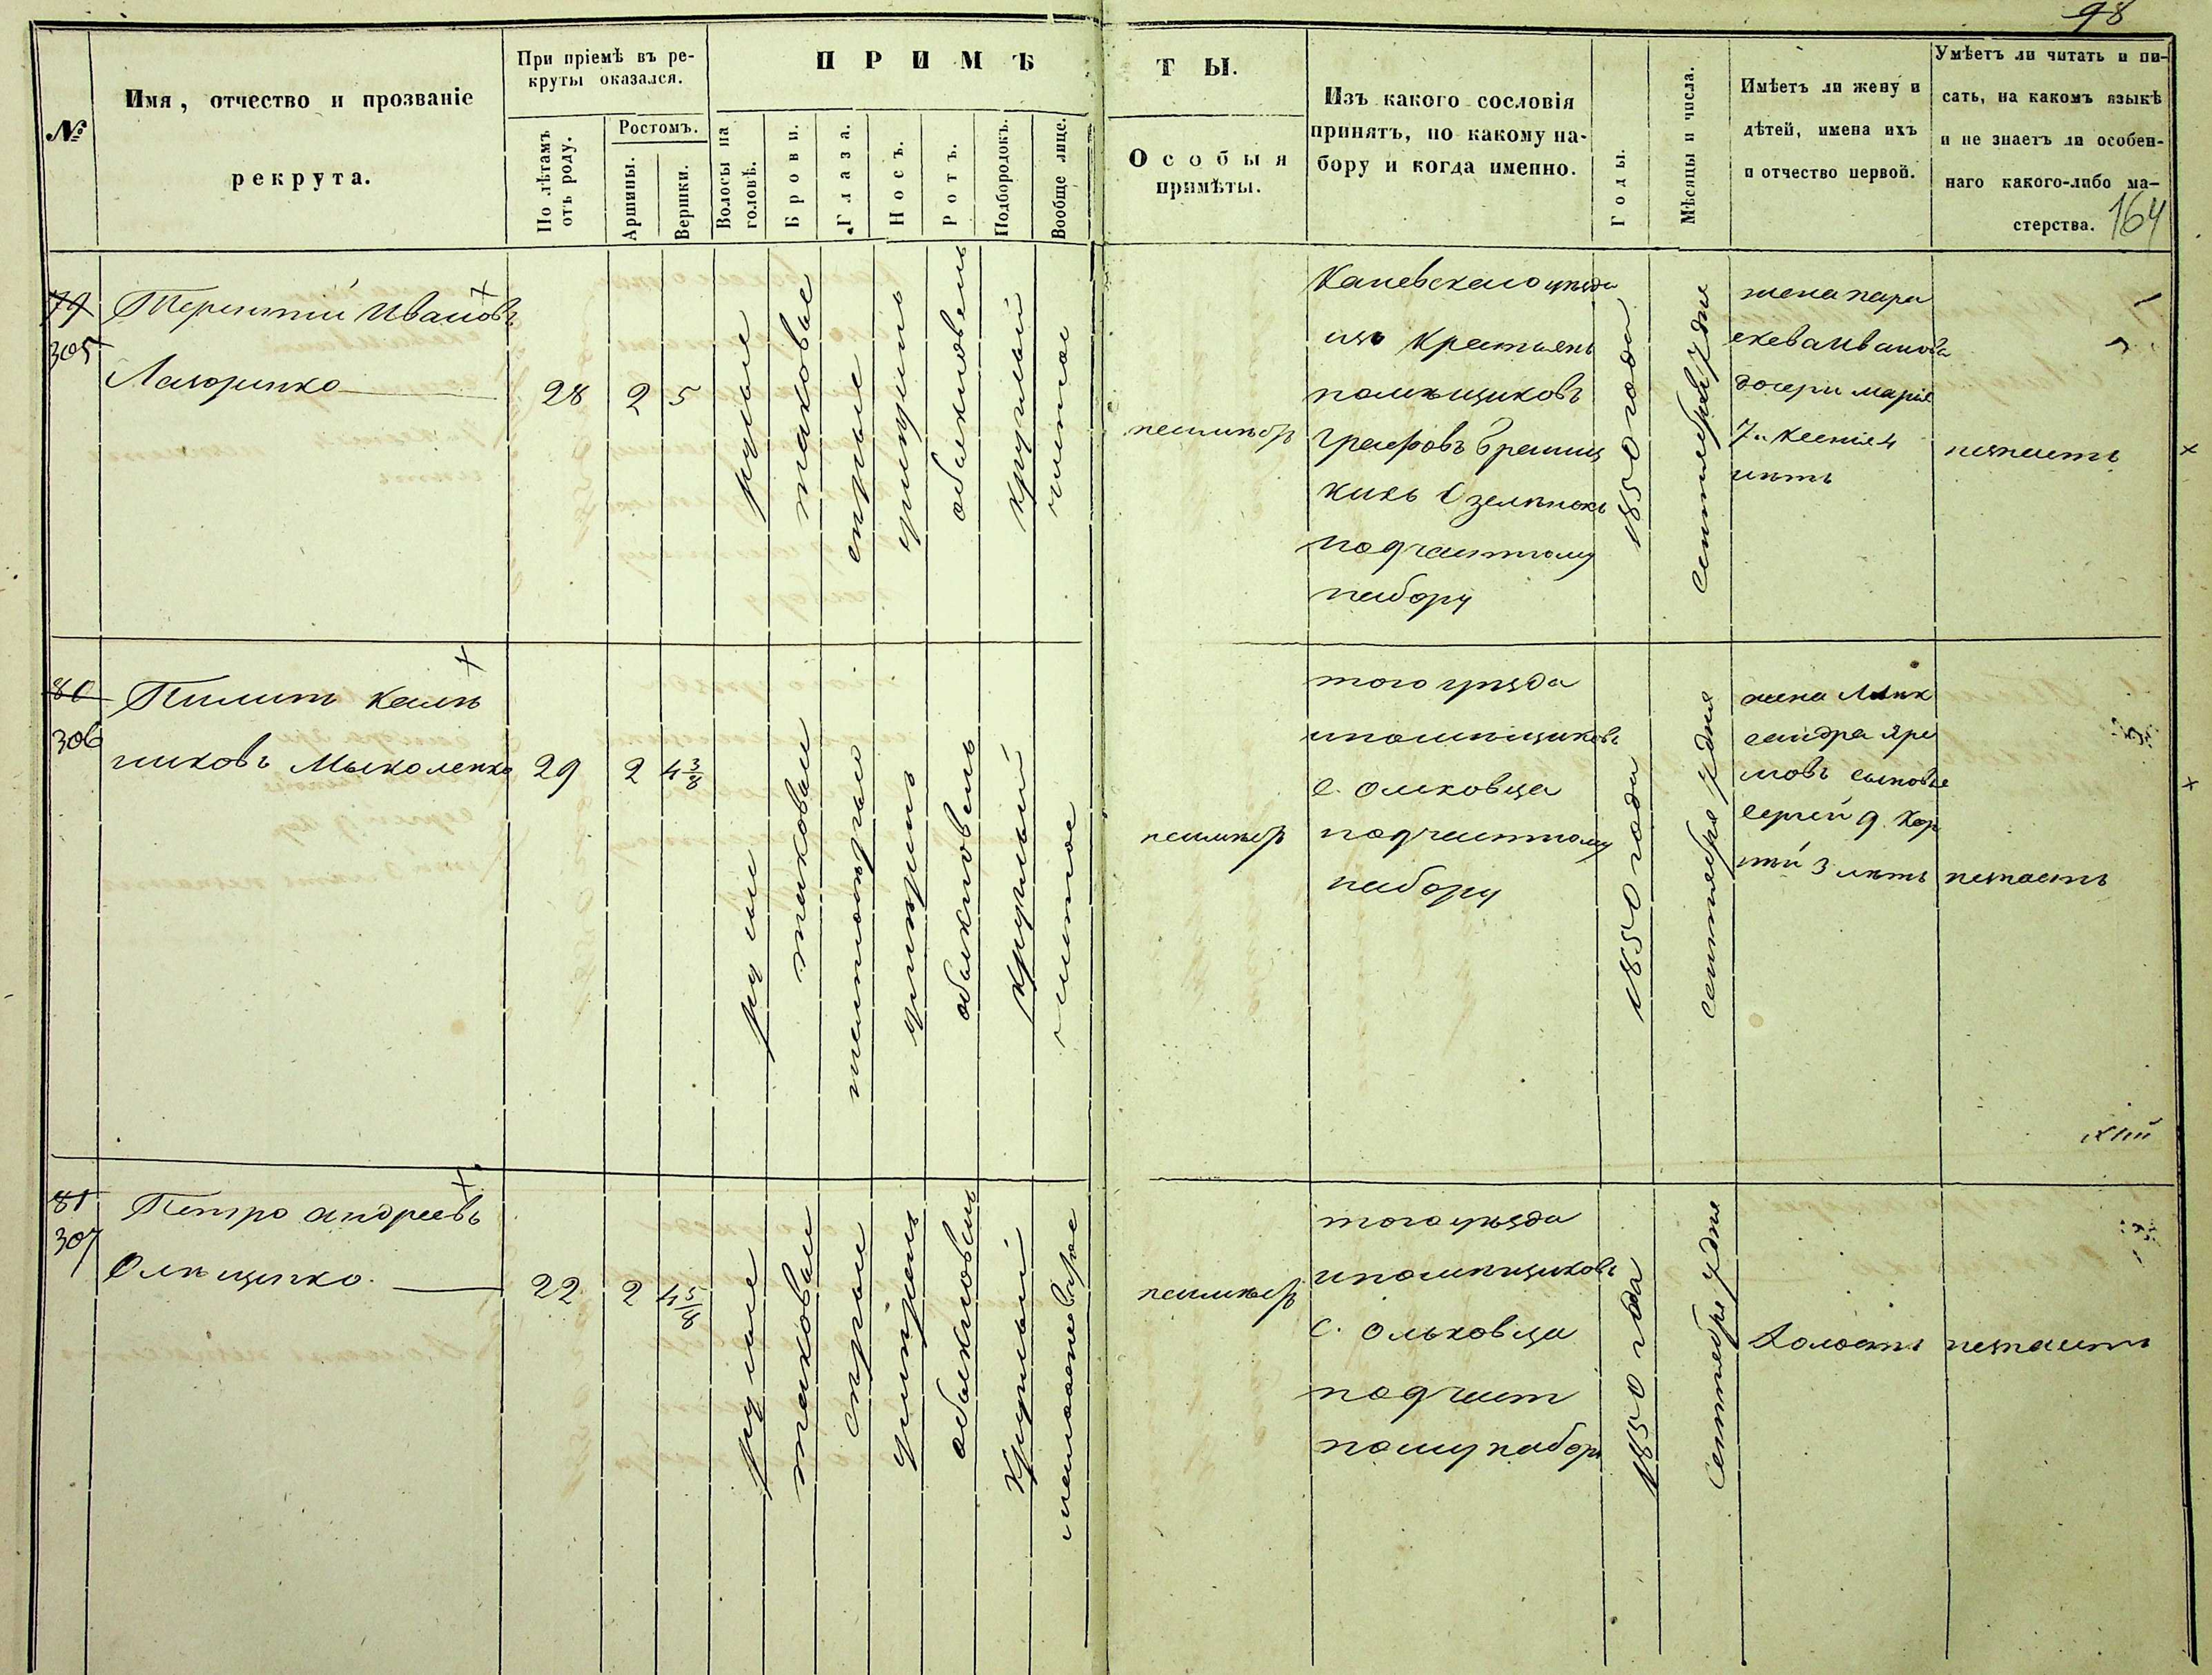 98
№
Имя, отчество и прозваніе
рекрута.
При пріемѣ въ ре-
круты оказался.
По лѣтамъ
отъ роду.
Ростомъ.
Аршины.
Вершки.
ПРИМѢ
ТЫ.
Волосы на
головѣ.
Брови.
Глаза.
Носъ.
Ротъ.
Подбородокъ.
Вообще лице.
Особыя
примѣты.
Изъ какого сословія
принятъ, по какому на-
бору и когда именно.
Годы.
Мѣсяцы и числа.
Имѣетъ ли жену и
дѣтей, имена ихъ
и отчество первой.
Умѣетъ ли читать и пи-
сать, на какомъ языкѣ
и не знаетъ ли особен-
наго какого-либо ма-
стерства.
164
79
305
Терентій Ивановъ
28
2
5
русые
таковые
серые
умѣренъ
обыкновенъ
круглый
чистое
неимѣетъ
Каневского уезда
изъ Крестьянъ
помѣщиковъ
Графовъ Браниц
кихъ
под частному
набору
1850 года
Сентября 7 дня
жена пара
скева Иванова
дочери Марія
7 и Ксенія 4
лѣтъ
незнаетъ
80
306
Пилипъ Калѣ
никовъ Мыколенко
29
2
4 3/8
русые
таковые
умѣренъ
обыкновенъ
круглый
чистое
неимѣетъ
того уезда
ипомѣщиковъ
с. Ольховца
под частному
набору
1850 года
сентября 7 дня
жена Алек
сандра Яре
мовъ сыновье
Сергей 9 Кор
нѣй 3 летъ
незнаетъ
81
307
Петро Андреевъ
22
2
4 5/8
русые
таковые
серые
умѣренъ
обыкновенъ
круглый
неимѣетъ
того уезда
ипомѣщиковъ
с. Ольховца
под част
ному набору
1850 года
Сентября 7 дня
Холостъ
незнаетъ